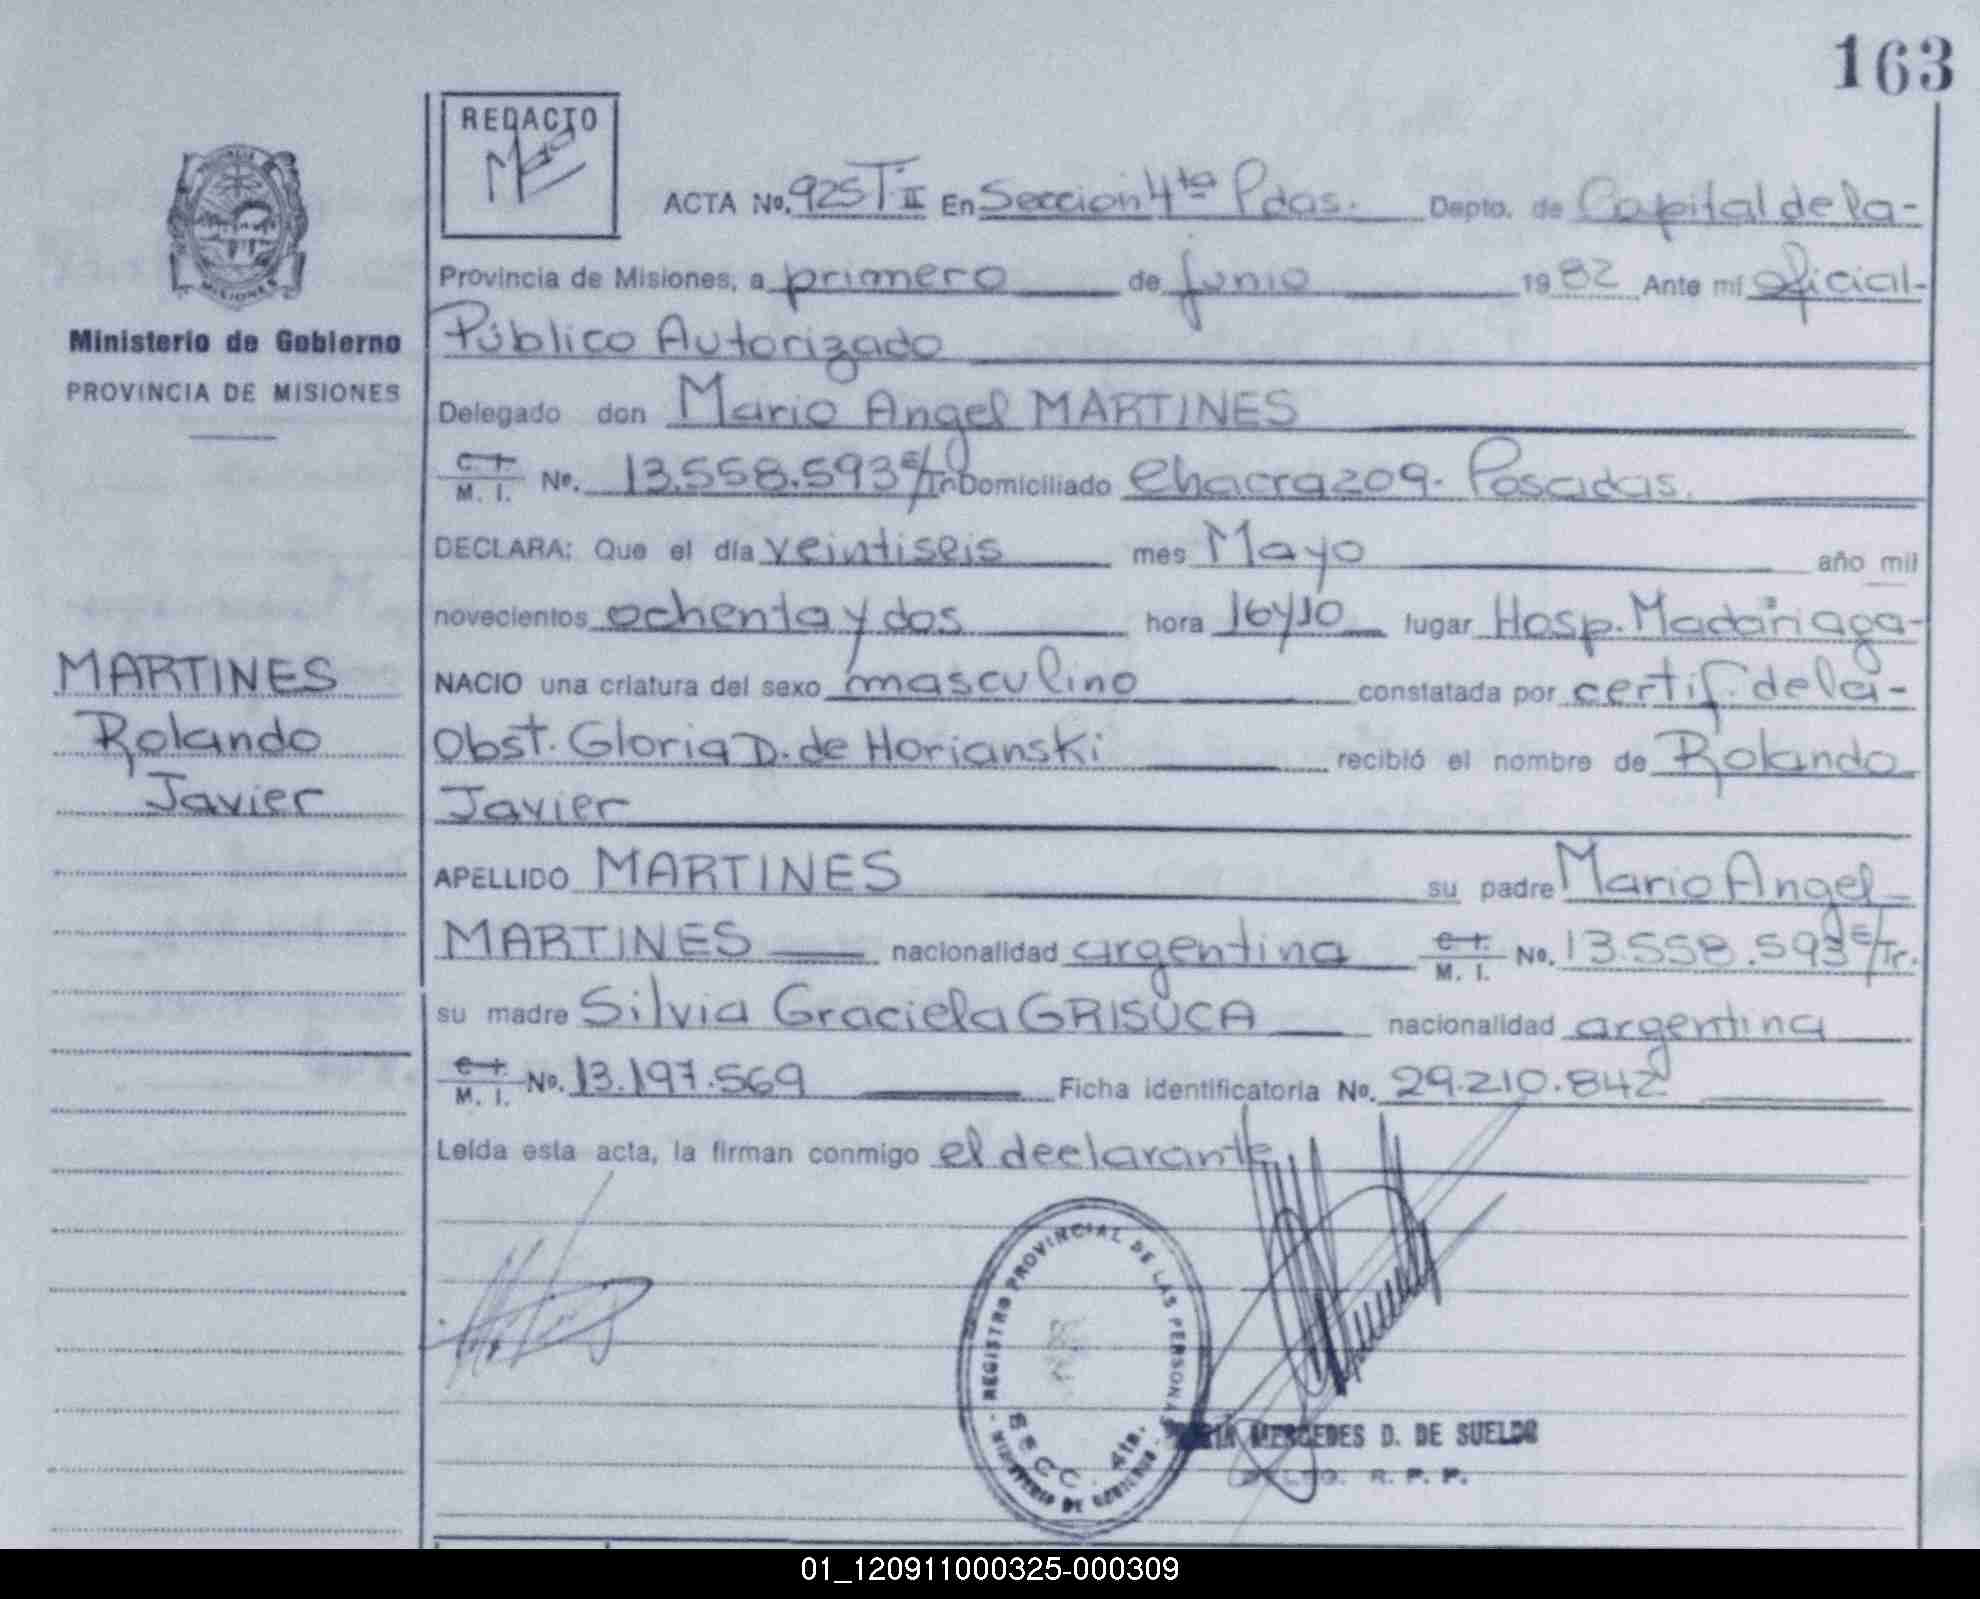 163
REDACTO
ACTA No. 925 T. II En Seccion 4ta Pdas. Depto. de Capital de la-
Provincia de Misiones, a primero de junio 1982 Ante mí oficial-
Público Autorizado
Delegado don Mario Angel MARTINES
C. I. M. I. No. 13.558.593 E/Tr Domiciliado Chacra 209. Posadas.
DECLARA: Que el día veintiseis mes Mayo año mil
novecientos ochenta y dos hora 16y10 lugar Hosp. Madariaga-
NACIO una criatura del sexo masculino constatada por certif. de la-
Obst. Gloria D. de Horianski recibió el nombre de Rolando
Javier
APELLIDO MARTINES su padre Mario Angel
MARTINES nacionalidad argentina C. I. M. I. No. 13.558.593 E/Tr.
su madre Silvia Graciela GRISUCA nacionalidad argentina
C. I. M. I. No. 13.197.569 Ficha identificatoria No. 29.210.842
Leída esta acta, la firman conmigo el declarante
Ministerio de Gobierno
PROVINCIA DE MISIONES
MARTINES
Rolando
Javier
REGISTRO PROVINCIAL DE LAS PERSONAS
SECC. 4ta.
MINISTERIO DE GOBIERNO
MERCEDES D. DE SUELDO
R. P. P.
01_120911000325-000309